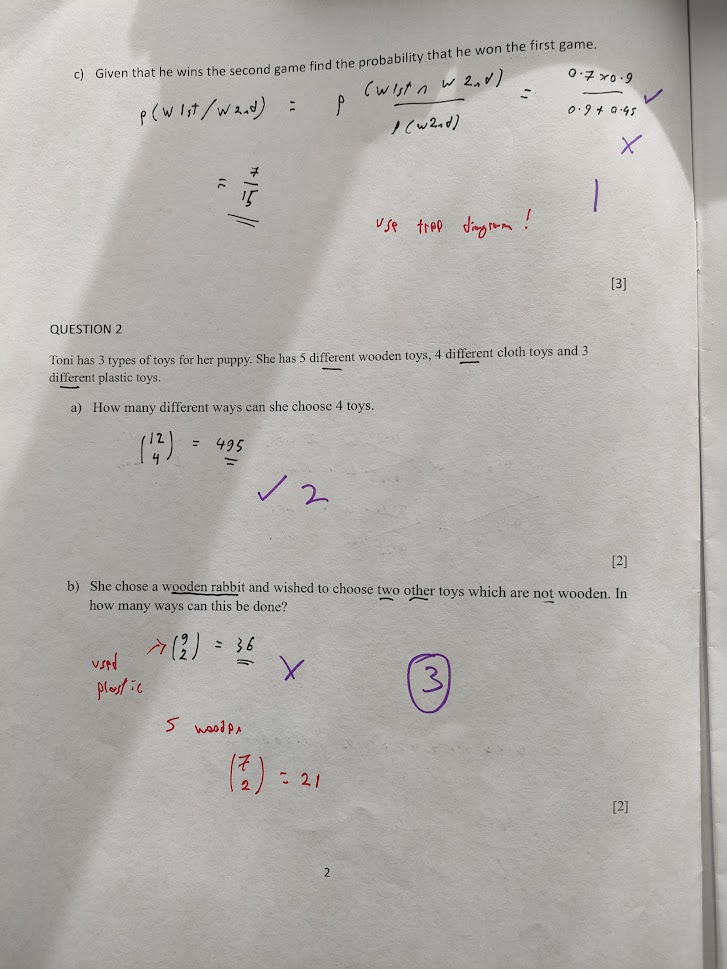 c) Given that he wins the second game find the probability that he won the first game.
P(W 1st/W 2nd) = P (W 1st ∩ W 2nd) / P(W2nd) = 0.7 x 0.9 / 0.9 + 0.45 ✓
X
= 7/15
1
use tree diagram !
[3]
QUESTION 2
Toni has 3 types of toys for her puppy. She has 5 different wooden toys, 4 different cloth toys and 3
different plastic toys.
a) How many different ways can she choose 4 toys.
(12 4) = 495
✓ 2
[2]
b) She chose a wooden rabbit and wished to choose two other toys which are not wooden. In
how many ways can this be done?
(9 2) = 36 X
used
plastic
3
5 wooden
(7 2) = 21
[2]
2